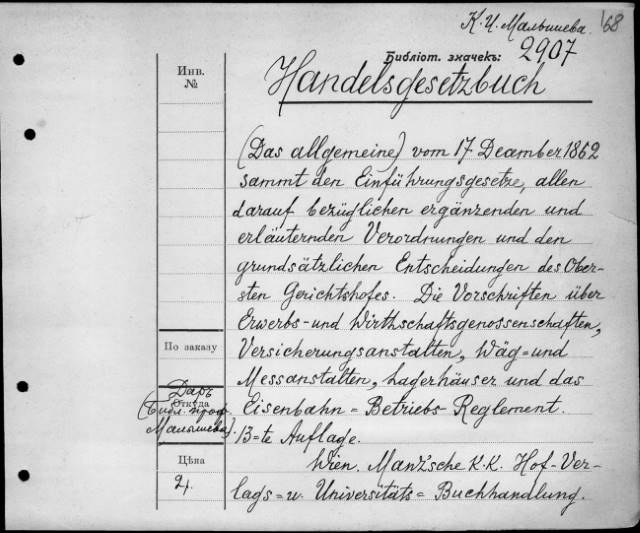 К. И. Малышева. 68
Библіот. значекъ: 2907
Инв. №
Handelsgesetzbuch
(Das allgemeine) vom 17 Deamber 1862
sammt den Einführungsgesetze, allen
darauf bezüglichen ergänzenden und
erläuternden Verordnungen und den
grundsätzlichen Entscheidungen des Ober-
sten Gerichtshofes. Die Vorschriften über
Erwerbs- und Wirthschaftsgenossenschaften,
По заказу
Versicherungsanstalten, Wäg- und
Messanstalten, Lagerhäuser und das
Даръ
Откуда
(Библ. проф.
Малышева).
Eisenbahn = Betriebs- Reglement.
13=te Auflage.
Цѣна
Wien. Manz'sche K.K. Hof-Ver-
lags = u. Universitäts = Buchhandlung.